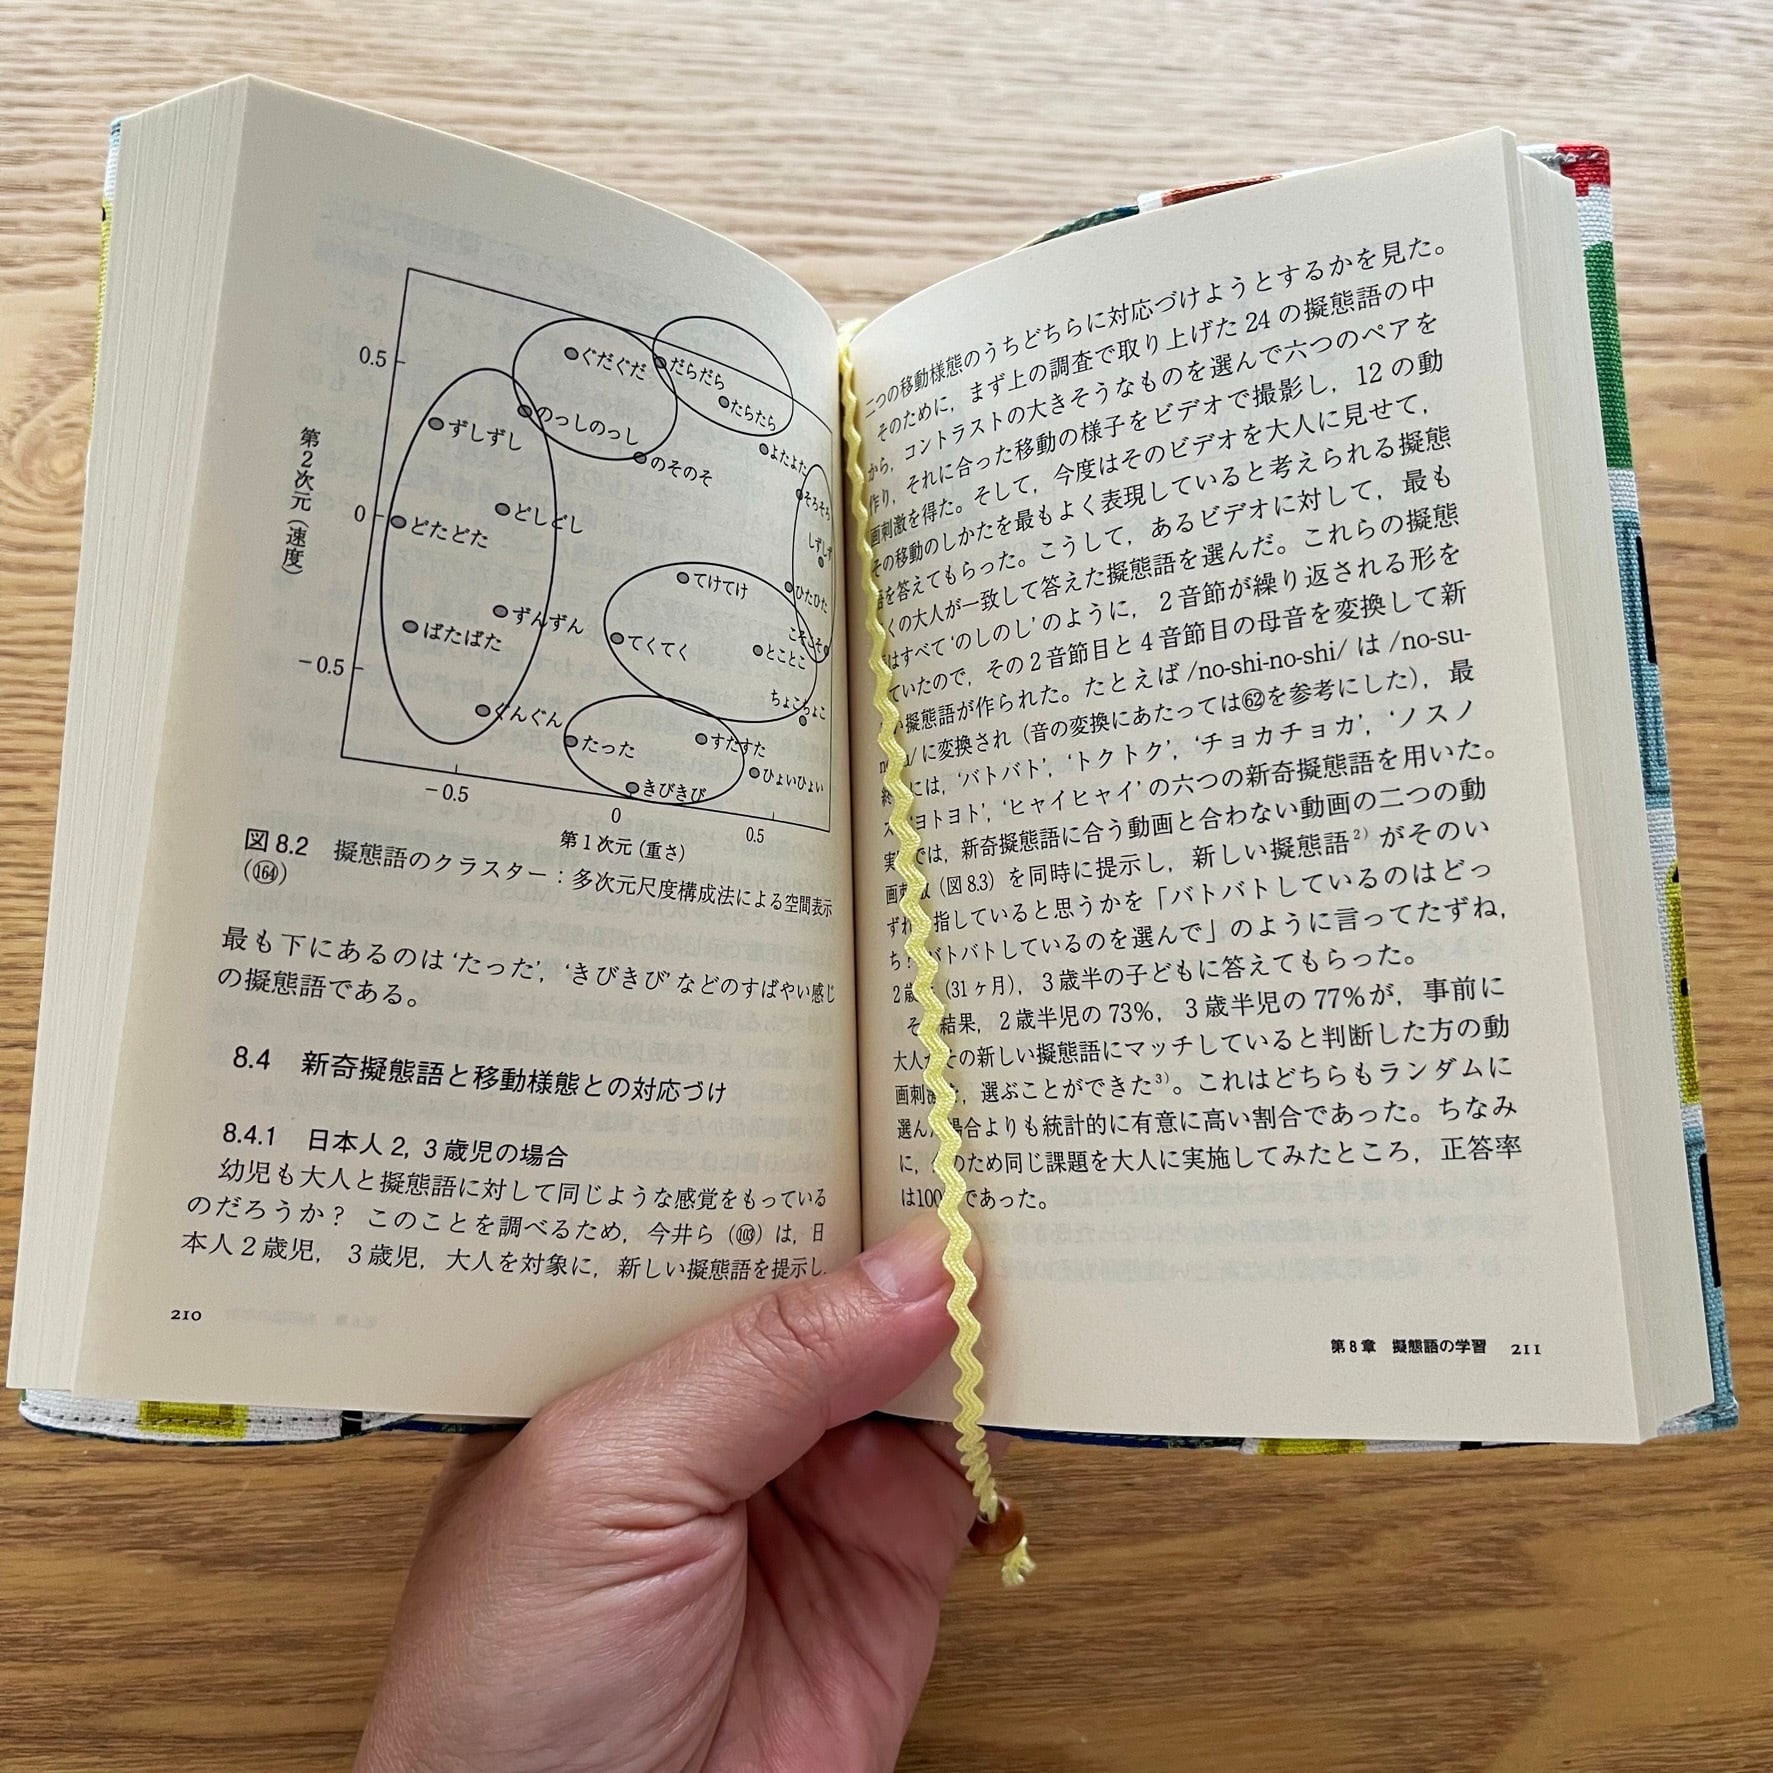 0.5
0
−0.5
第2次元（速度）
ぐだぐだ
だらだら
たらたら
のっしのっし
ずしずし
のそのそ
よたよた
そろそろ
どしどし
どたどた
しずしず
てけてけ
ひたひた
ずんずん
ばたばた
てくてく
とことこ
こそこそ
ちょこちょこ
ぐんぐん
たった
すたすた
きびきび
ひょいひょい
−0.5
0
0.5
第1次元（重さ）
図8.2 擬態語のクラスター：多次元尺度構成法による空間表示
（164）
最も下にあるのは‘たった’，‘きびきび’などのすばやい感じ
の擬態語である。
8.4 新奇擬態語と移動様態との対応づけ
8.4.1 日本人2，3歳児の場合
幼児も大人と擬態語に対して同じような感覚をもっている
のだろうか？ このことを調べるため，今井ら（103）は，日
本人2歳児，3歳児，大人を対象に，新しい擬態語を提示し，
210
二つの移動様態のうちどちらに対応づけようとするかを見た。
そのために，まず上の調査で取り上げた24の擬態語の中
から，コントラストの大きそうなものを選んで六つのペアを
作り，それに合った移動の様子をビデオで撮影し，12の動
画刺激を得た。そして，今度はそのビデオを大人に見せて，
その移動のしかたを最もよく表現していると考えられる擬態
語を答えてもらった。こうして，あるビデオに対して，最も
くの大人が一致して答えた擬態語を選んだ。これらの擬態
はすべて‘のしのし’のように，2音節が繰り返される形を
ていたので，その2音節目と4音節目の母音を変換して新
い擬態語が作られた。たとえば/no-shi-no-shi/は/no-su-
/に変換され（音の変換にあたっては62を参考にした），最
には，‘バトバト’，‘トクトク’，‘チョカチョカ’，‘ノスノ
ヨトヨト’，‘ヒャイヒャイ’の六つの新奇擬態語を用いた。
実 では，新奇擬態語に合う動画と合わない動画の二つの動
画刺 （図8.3）を同時に提示し，新しい擬態語2）がそのい
ずれ 指していると思うかを「バトバトしているのはどっ
ち？ バトバトしているのを選んで」のように言ってたずね，
2歳 （31ヶ月），3歳半の子どもに答えてもらった。
そ 結果，2歳半児の73%，3歳半児の77%が，事前に
大人 その新しい擬態語にマッチしていると判断した方の動
画刺 ，選ぶことができた3）。これはどちらもランダムに
選ん 場合よりも統計的に有意に高い割合であった。ちなみ
に， のため同じ課題を大人に実施してみたところ，正答率
は100 であった。
第8章 擬態語の学習 211